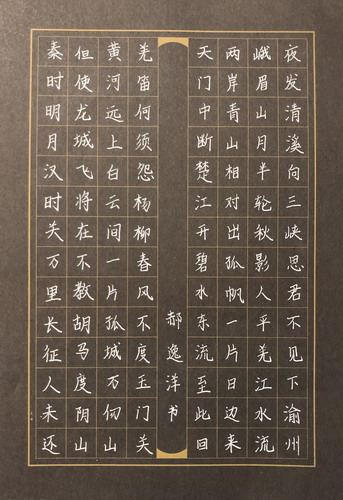 夜发清溪向三峡思君不见下渝州
峨眉山月半轮秋影入平羌江水流
两岸青山相对出孤帆一片日边来
天门中断楚江开碧水东流至此回
郝逸洋书
羌笛何须怨杨柳春风不度玉门关
黄河远上白云间一片孤城万仞山
但使龙城飞将在不教胡马度阴山
秦时明月汉时关万里长征人未还